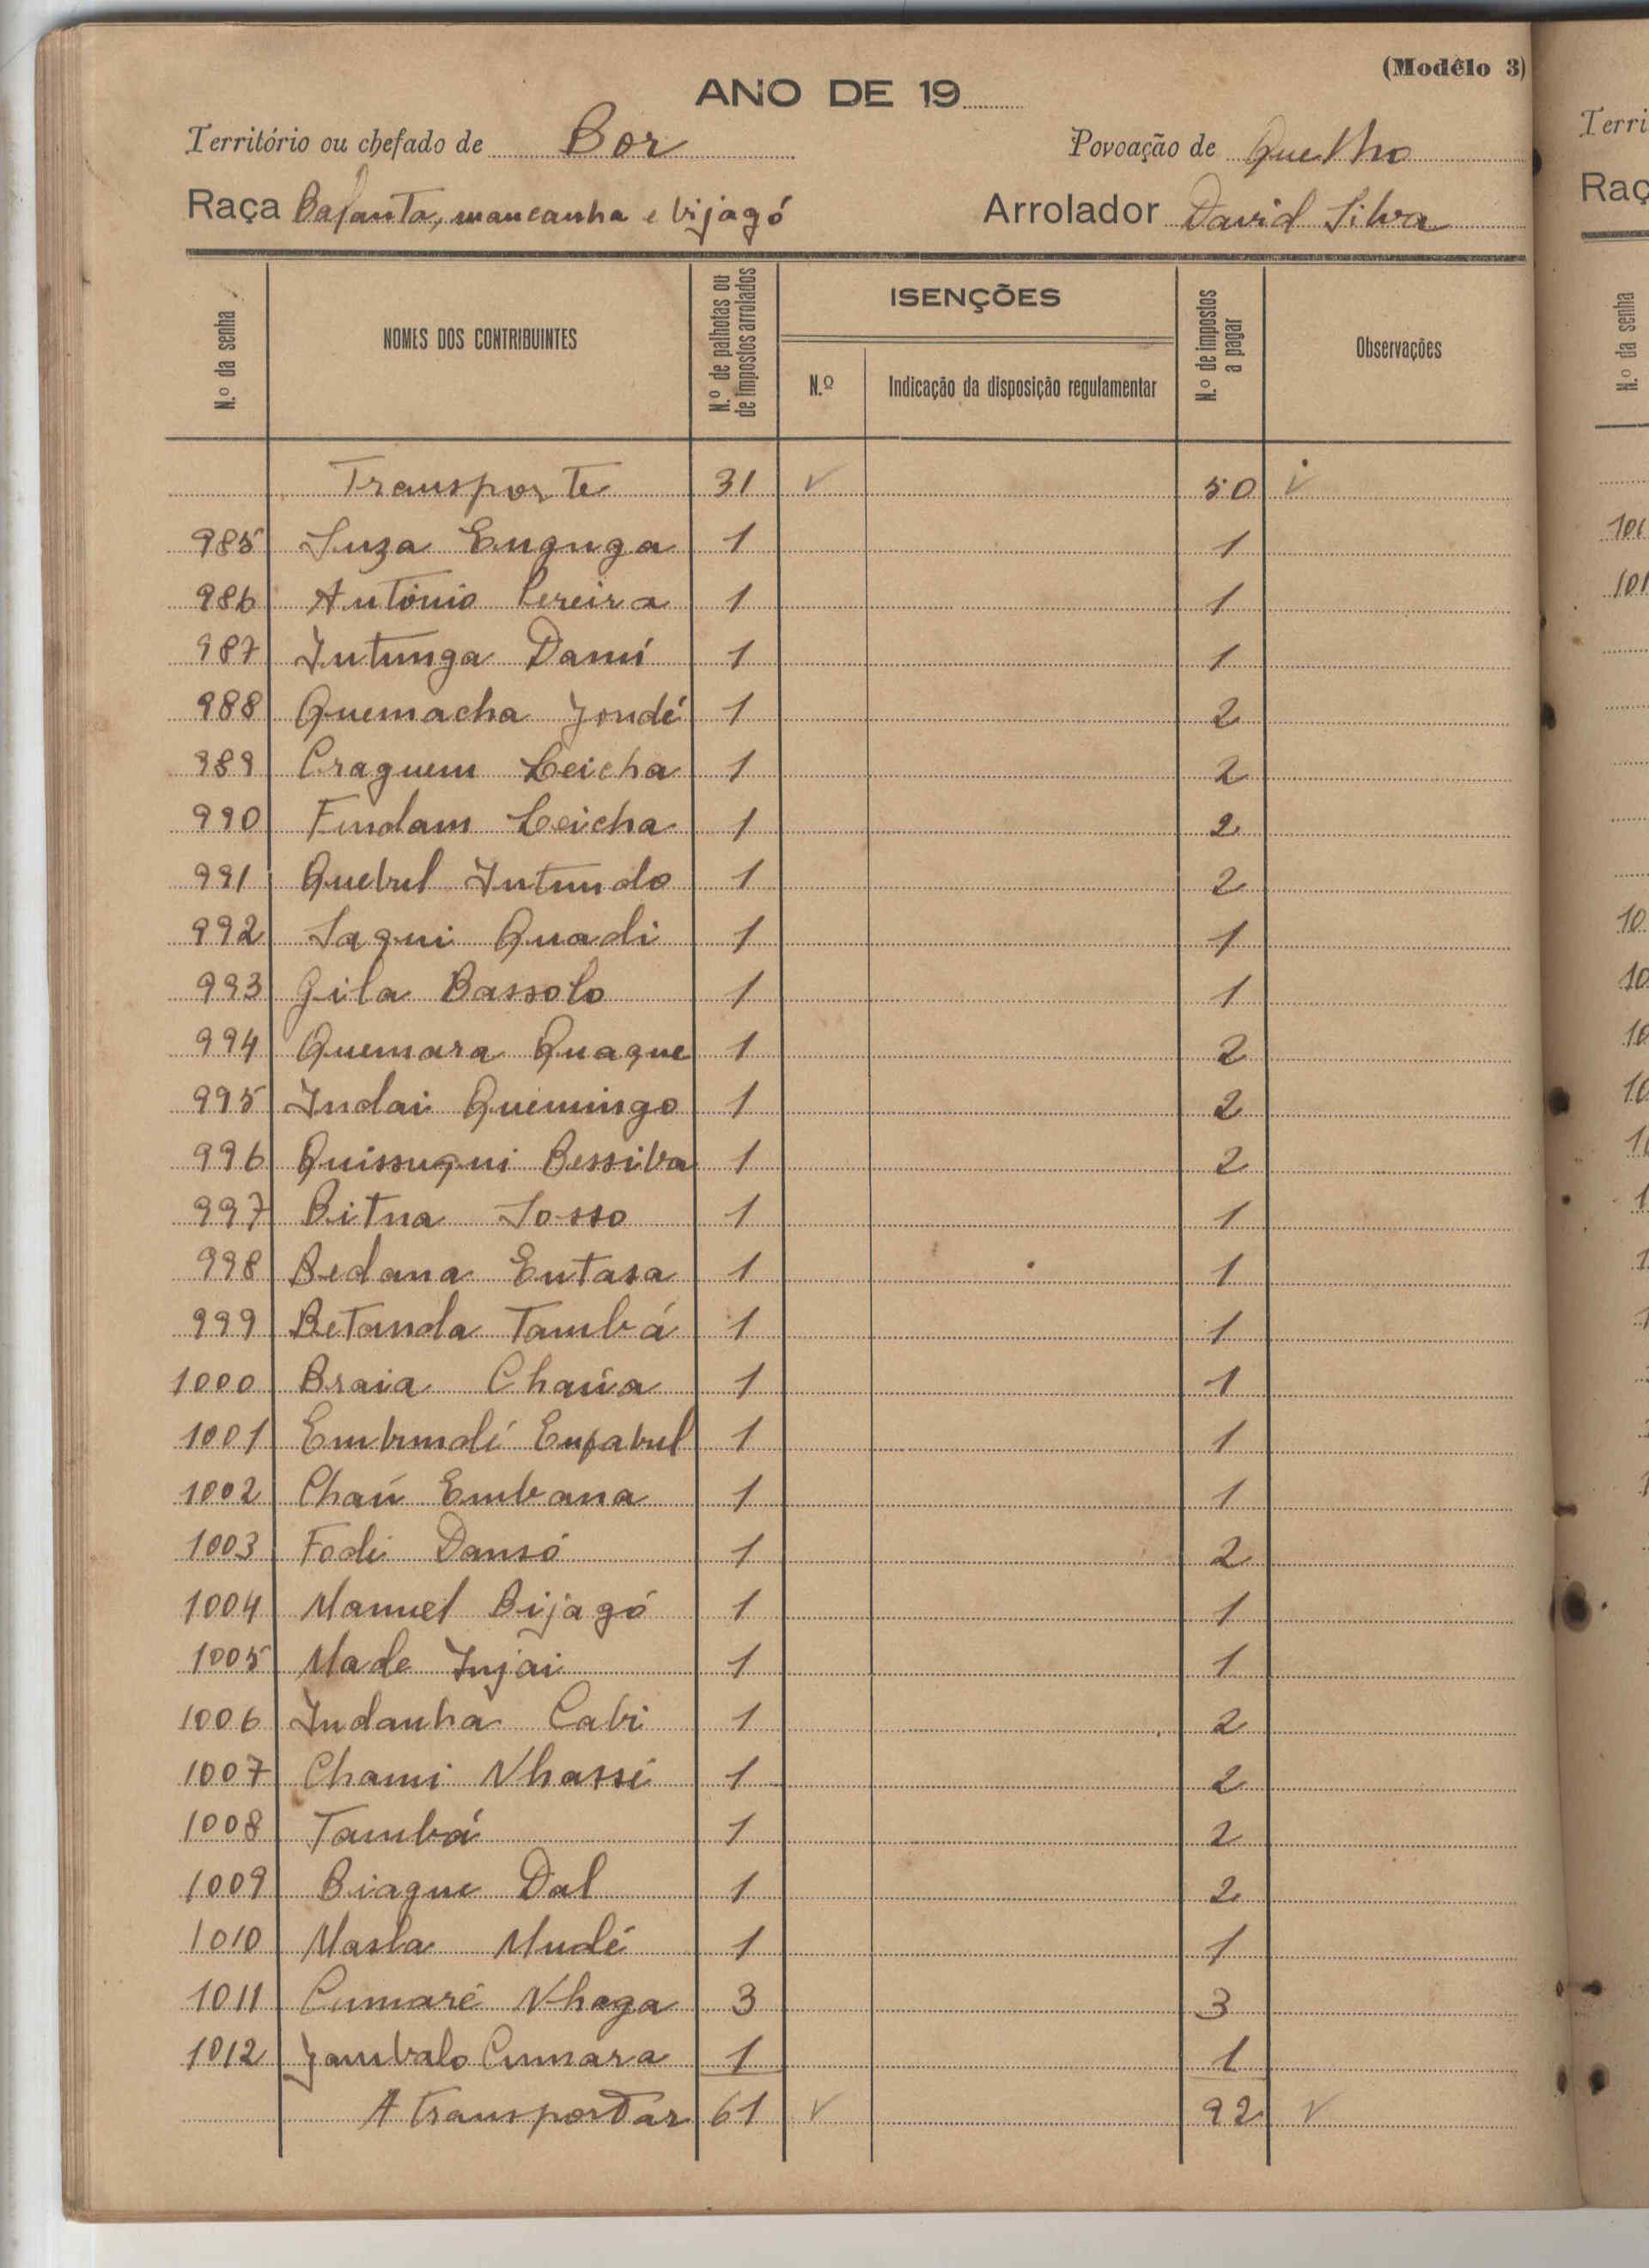 (Modêlo 3)
ANO DE 19
Território ou chefado de Bor Povoação de Quelho
Raça Balanta, mancanha e bijagó Arrolador David Silva
N.º da senha NOMES DOS CONTRIBUINTES N.º de palhotas ou de impostos arrolados ISENÇÕES N.º Indicação da disposição regulamentar N.º de impostos a pagar Observações
Transporte 31 ✓ 50 ✓
985 Suza Enguga 1 1
986 António Pereira 1 1
987 Intunga Damí 1 1
988 Quemacha Jondé 1 2
989 Craguem Beicha 1 2
990 Findam Beicha 1 2
991 Quebul Intundo 1 2
992 Saqui Quadi 1 1
993 Gila Bassolo 1 1
994 Quemara Quaque 1 2
995 Indai Quemingo 1 2
996 Quissuqui Bessiba 1 2
997 Bitna Sosso 1 1
998 Bedana Entasa 1 1
999 Betanda Tambá 1 1
1000 Braia Chaúa 1 1
1001 Embundé Enfabul 1 1
1002 Chaú Embana 1 1
1003 Fodé Dansó 1 2
1004 Manuel Bijagó 1 1
1005 Made Injai 1 1
1006 Indanha Cabi 1 2
1007 Chami Nhassé 1 2
1008 Tambá 1 2
1009 Biague Dal 1 2
1010 Masla Mudé 1 1
1011 Cumaré Nhaga 3 3
1012 Jambalo Cumara 1 1
A transportar 61 ✓ 92 ✓
Terri
Raç
N.º da senha